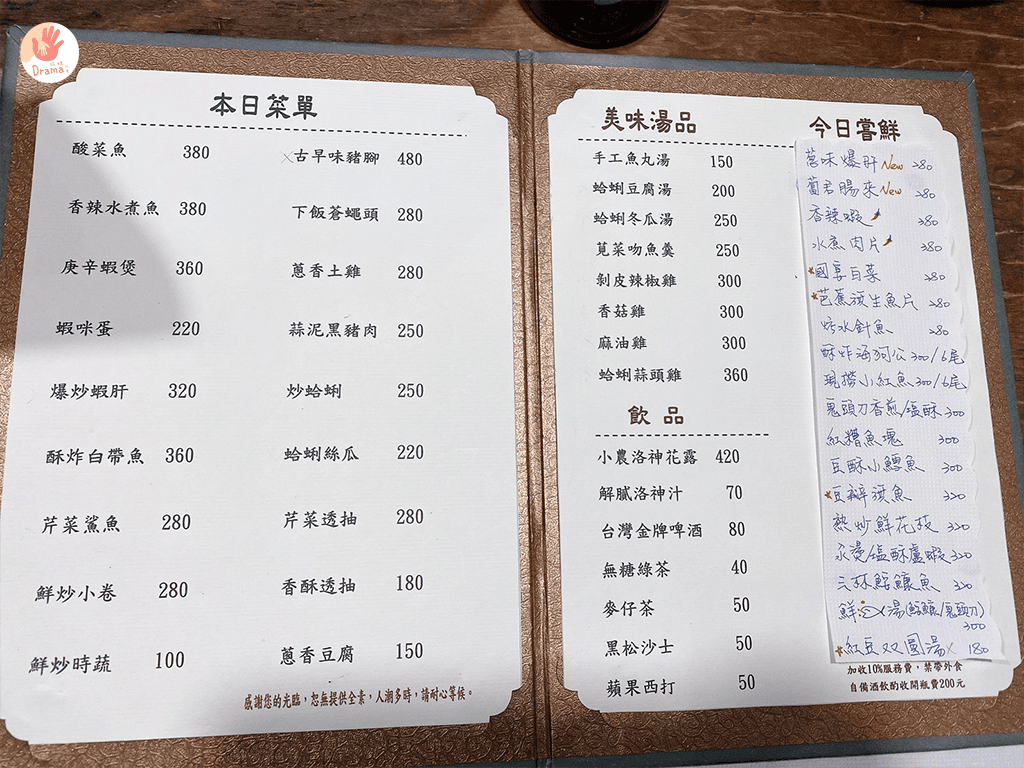 Drama
本日菜單
酸菜魚 380
香辣水煮魚 380
庚辛蝦煲 360
蝦咪蛋 220
爆炒蝦肝 320
酥炸白帶魚 360
芹菜鯊魚 280
鮮炒小卷 280
鮮炒時蔬 100
×古早味豬腳 480
下飯蒼蠅頭 280
蔥香土雞 280
蒜泥黑豬肉 250
炒蛤蜊 250
蛤蜊絲瓜 220
芹菜透抽 280
香酥透抽 180
蔥香豆腐 150
感謝您的光臨,恕無提供全素,人潮多時,請耐心等候。
美味湯品
手工魚丸湯 150
蛤蜊豆腐湯 200
蛤蜊冬瓜湯 250
莧菜吻魚羹 250
剝皮辣椒雞 300
香菇雞 300
麻油雞 300
蛤蜊蒜頭雞 360
飲品
小農洛神花露 420
解膩洛神汁 70
台灣金牌啤酒 80
無糖綠茶 40
麥仔茶 50
黑松沙士 50
蘋果西打 50
今日嘗鮮
蔥味爆肝 New 280
腸來 New 280
香辣蝦 380
水煮肉片 380
國宴白菜 280
芭蕉漬生魚片 280
烤水針魚 280
酥炸海狗公 300/6尾
現撈小紅魚 300/6尾
鬼頭刀香煎/塩酥 300
紅糟魚塊 300
豆酥小鱈魚 300
豆瓣漬魚 320
熱炒鮮花枝 320
水燙/塩酥蘆蝦 320
三杯鮟鱇魚 320
鮮 湯(鮟鱇/鬼頭刀)
300
紅豆双圓湯× 180
加收10%服務費,禁帶外食
自備酒飲酌收開瓶費200元